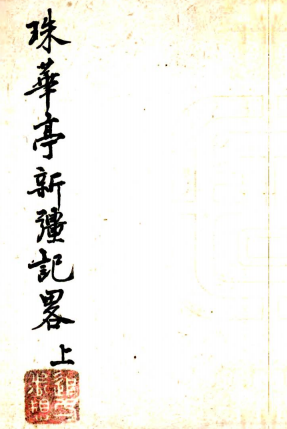 珠華亭新疆記畧上